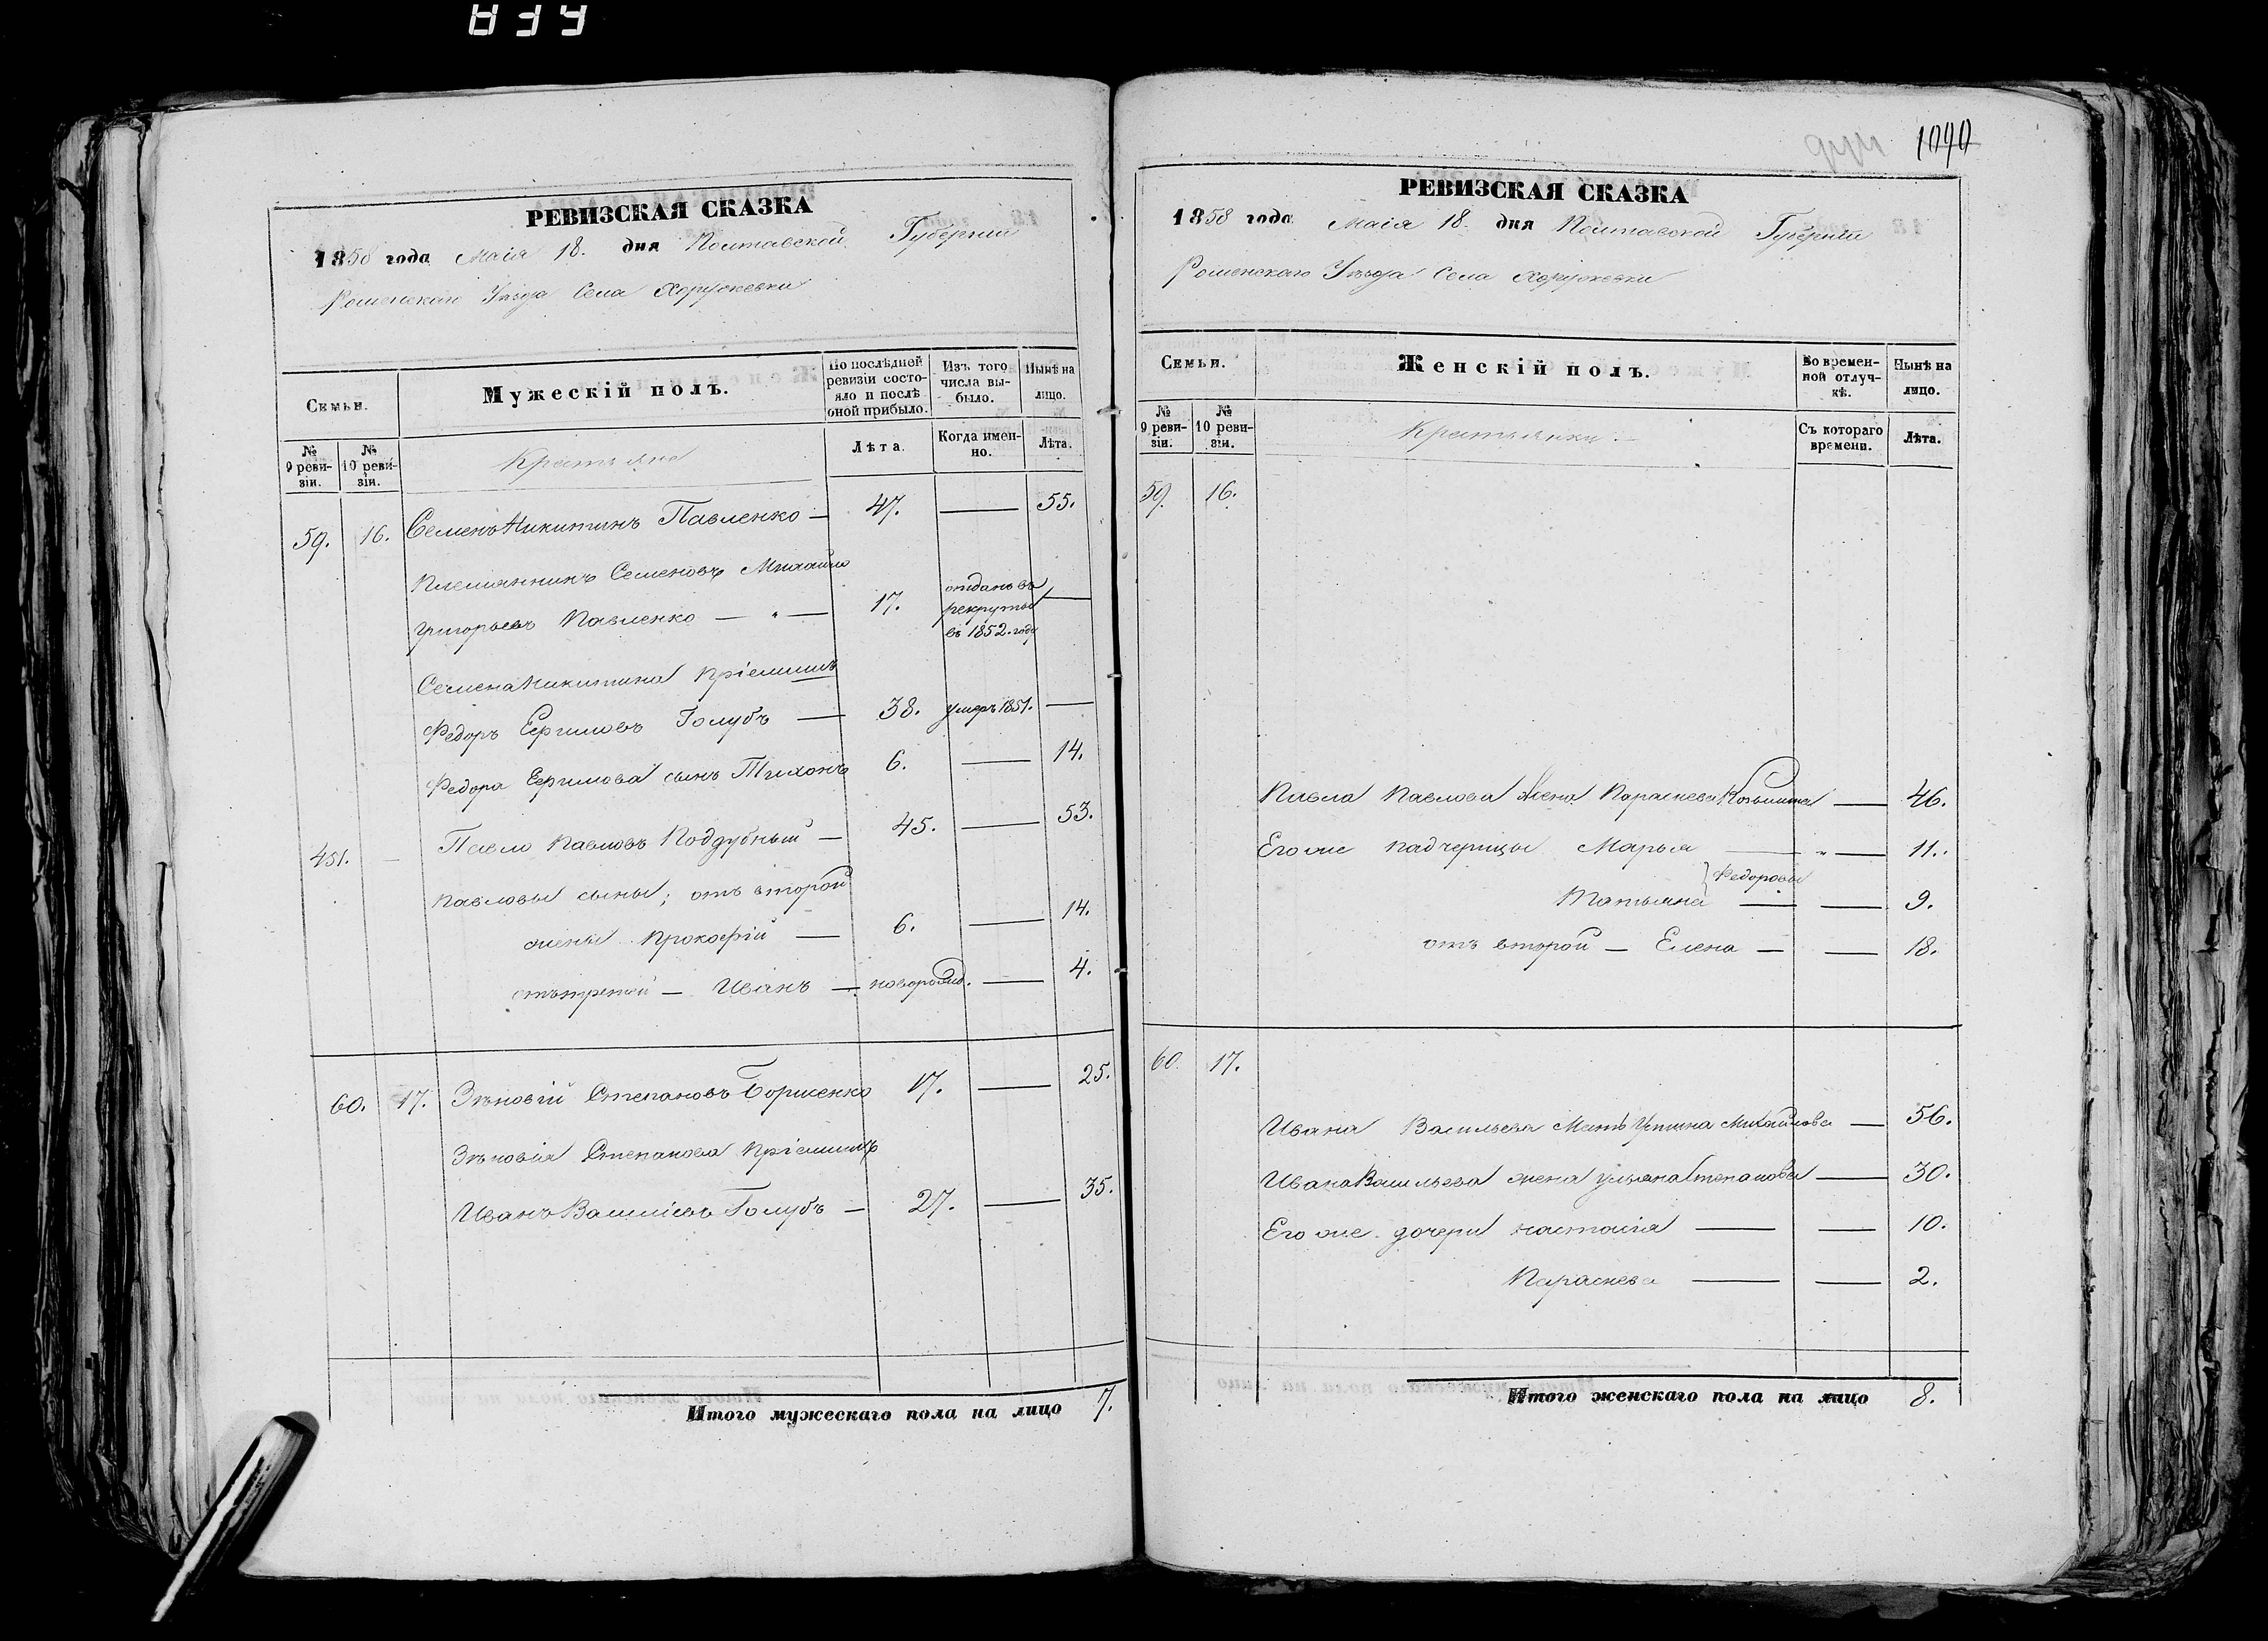 РЕВИЗСКАЯ СКАЗКА
1858 года Маія 18. дня Полтавской Губерніи
Роменскаго Уѣзда Села Хоружевки
Семьи.
Мужескій полъ.
По послѣдней ревизіи состояло и послѣ оной прибыло.
Изъ того числа выбыло.
Нынѣ на лицо.
№ 9 ревизіи.
№ 10 ревизіи.
Крестьяне
Лѣта.
Когда именно.
Лѣта.
59. 16. Семенъ Никитинъ Павленко — 47. — 55.
Племянникъ Семеновъ Михайло
Григорьевъ Павленко — " — 17. отданъ въ рекруты въ 1852. году —
Семена Никитина Пріемышъ
Федоръ Ефимовъ Голубъ — 38. умеръ 1851. —
Федора Ефимова сынъ Тихонъ 6. — 14.
451. — Павло Павловъ Поддубный — 45. — 53.
Павловы сыны; отъ второй
жены Прокофій — 6. — 14.
отъ третей — Иванъ — новорожд. — 4.
60. 17. Зѣновій Степановъ Борисенко 17. — 25.
Зѣновія Степанова Пріемышъ
Иванъ Васильевъ Голубъ — 27. — 35.
Итого мужескаго пола на лицо 7.
1090
РЕВИЗСКАЯ СКАЗКА
1858 года Маія 18. дня Полтавской Губерніи
Роменскаго Уѣзда Села Хоружевки
Семьи.
Женскій полъ.
Во временной отлучкѣ.
Нынѣ на лицо.
№ 9 ревизіи.
№ 10 ревизіи.
Крестьянки. —
Съ котораго времени.
Лѣта.
59. 16.
Павла Павлова Жена Параскева Козьмина — 46.
Его же падчерицы Марья — " — 11.
} Федоровы
Татьяна — — 9.
отъ второй — Елена — — 18.
60. 17.
Ивана Васильева Мать Устина Михайлова — 56.
Ивана Васильева жена Ульяна Степанова — 30.
Его же дочери Настасія — — 10.
Параскева — — 2.
Итого женскаго пола на лицо 8.